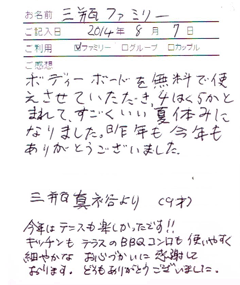 お名前 三瓶 ファミリー
ご記入日 2014年 8月 7日
ご利用 ☑ファミリー □グループ □カップル
ご感想
ボディーボードを無料で使
えさせていただき,
まれて,すごくいい夏休みに
なりました。年も今年も
ありがとうございました。
三瓶 真 より (9才)
今年はテニスも楽しかったです!!
キッチンも テラスのBBQコンロも使いやすく
細やかな お心づかいに 感謝して
おります。 どうもありがとうございました。